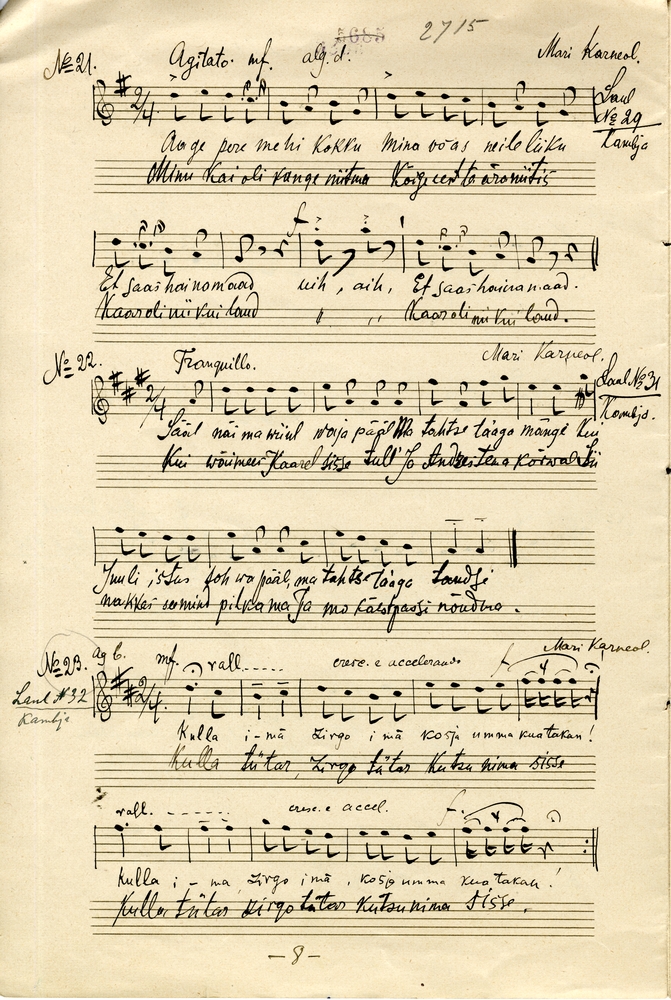 5685 2715
№ 21. Agitato. mf. alg. d. Mari Karneol.
Laul № 29
Kambja
Aage pere mehi kokku mina võas neile liiku
Minu kai oli kange niitma Kõige
Et saas haina maad uih, aih, Et saas haina maad.
Kaar oli nii kui laud " " Kaar oli nii kui laud.
№ 22. Tranquillo. Mari Karneol.
Laul № 31
Kambja.
Sääl näi ma wiiul waja pääl Ma tahtse täägo mängi Kui
Kui Kaarel sisse tull' Ja
Juuli istus pääl, ma tahtse täägo tandsi
nakkas seemind pilkama Ja mo käest passi nõudma.
№ 23. mf. rall..... cresc. e accelerando f Mari Karneol.
Laul № 32
Kambja
Kulla i-mä zirgo i mä kosja umma kua takan!
Kulla tütar, zirgo tütar Kutsu nima sisse
rall. ....... cresc. e accel. f.
Kulla i-ma zirgo i mä, kosja umma kua takan!
Kulla tütar zirgo tütar Kutsu nima sisse.
-8-